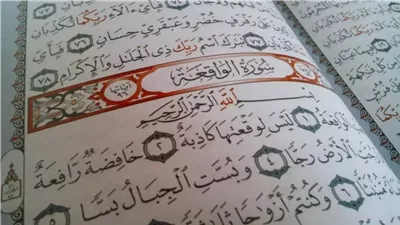 فَبِأَيِّ ءَالَآءِ رَبِّكُمَا تُكَذِّبَانِ
خُضْرٍ وَعَبْقَرِيٍّ حِسَانٍ ٧٦ فَبِأَيِّ
٧٧ تَبَٰرَكَ ٱسْمُ رَبِّكَ ذِى ٱلْجَلَٰلِ وَٱلْإِكْرَامِ ٧٨
سُورَةُ الْوَاقِعَةِ
آياتها ٩٦
بِسْمِ ٱللَّهِ ٱلرَّحْمَٰنِ ٱلرَّحِيمِ
ٱلْوَاقِعَةُ ١ لَيْسَ لِوَقْعَتِهَا كَاذِبَةٌ ٢ خَافِضَةٌ رَّافِعَةٌ
ٱلْأَرْضُ رَجًّا ٤ وَبُسَّتِ ٱلْجِبَالُ بَسًّا ٥
مُّنۢبَثًّا ٦ وَكُنتُمْ أَزْوَٰجًا ثَلَٰثَةً